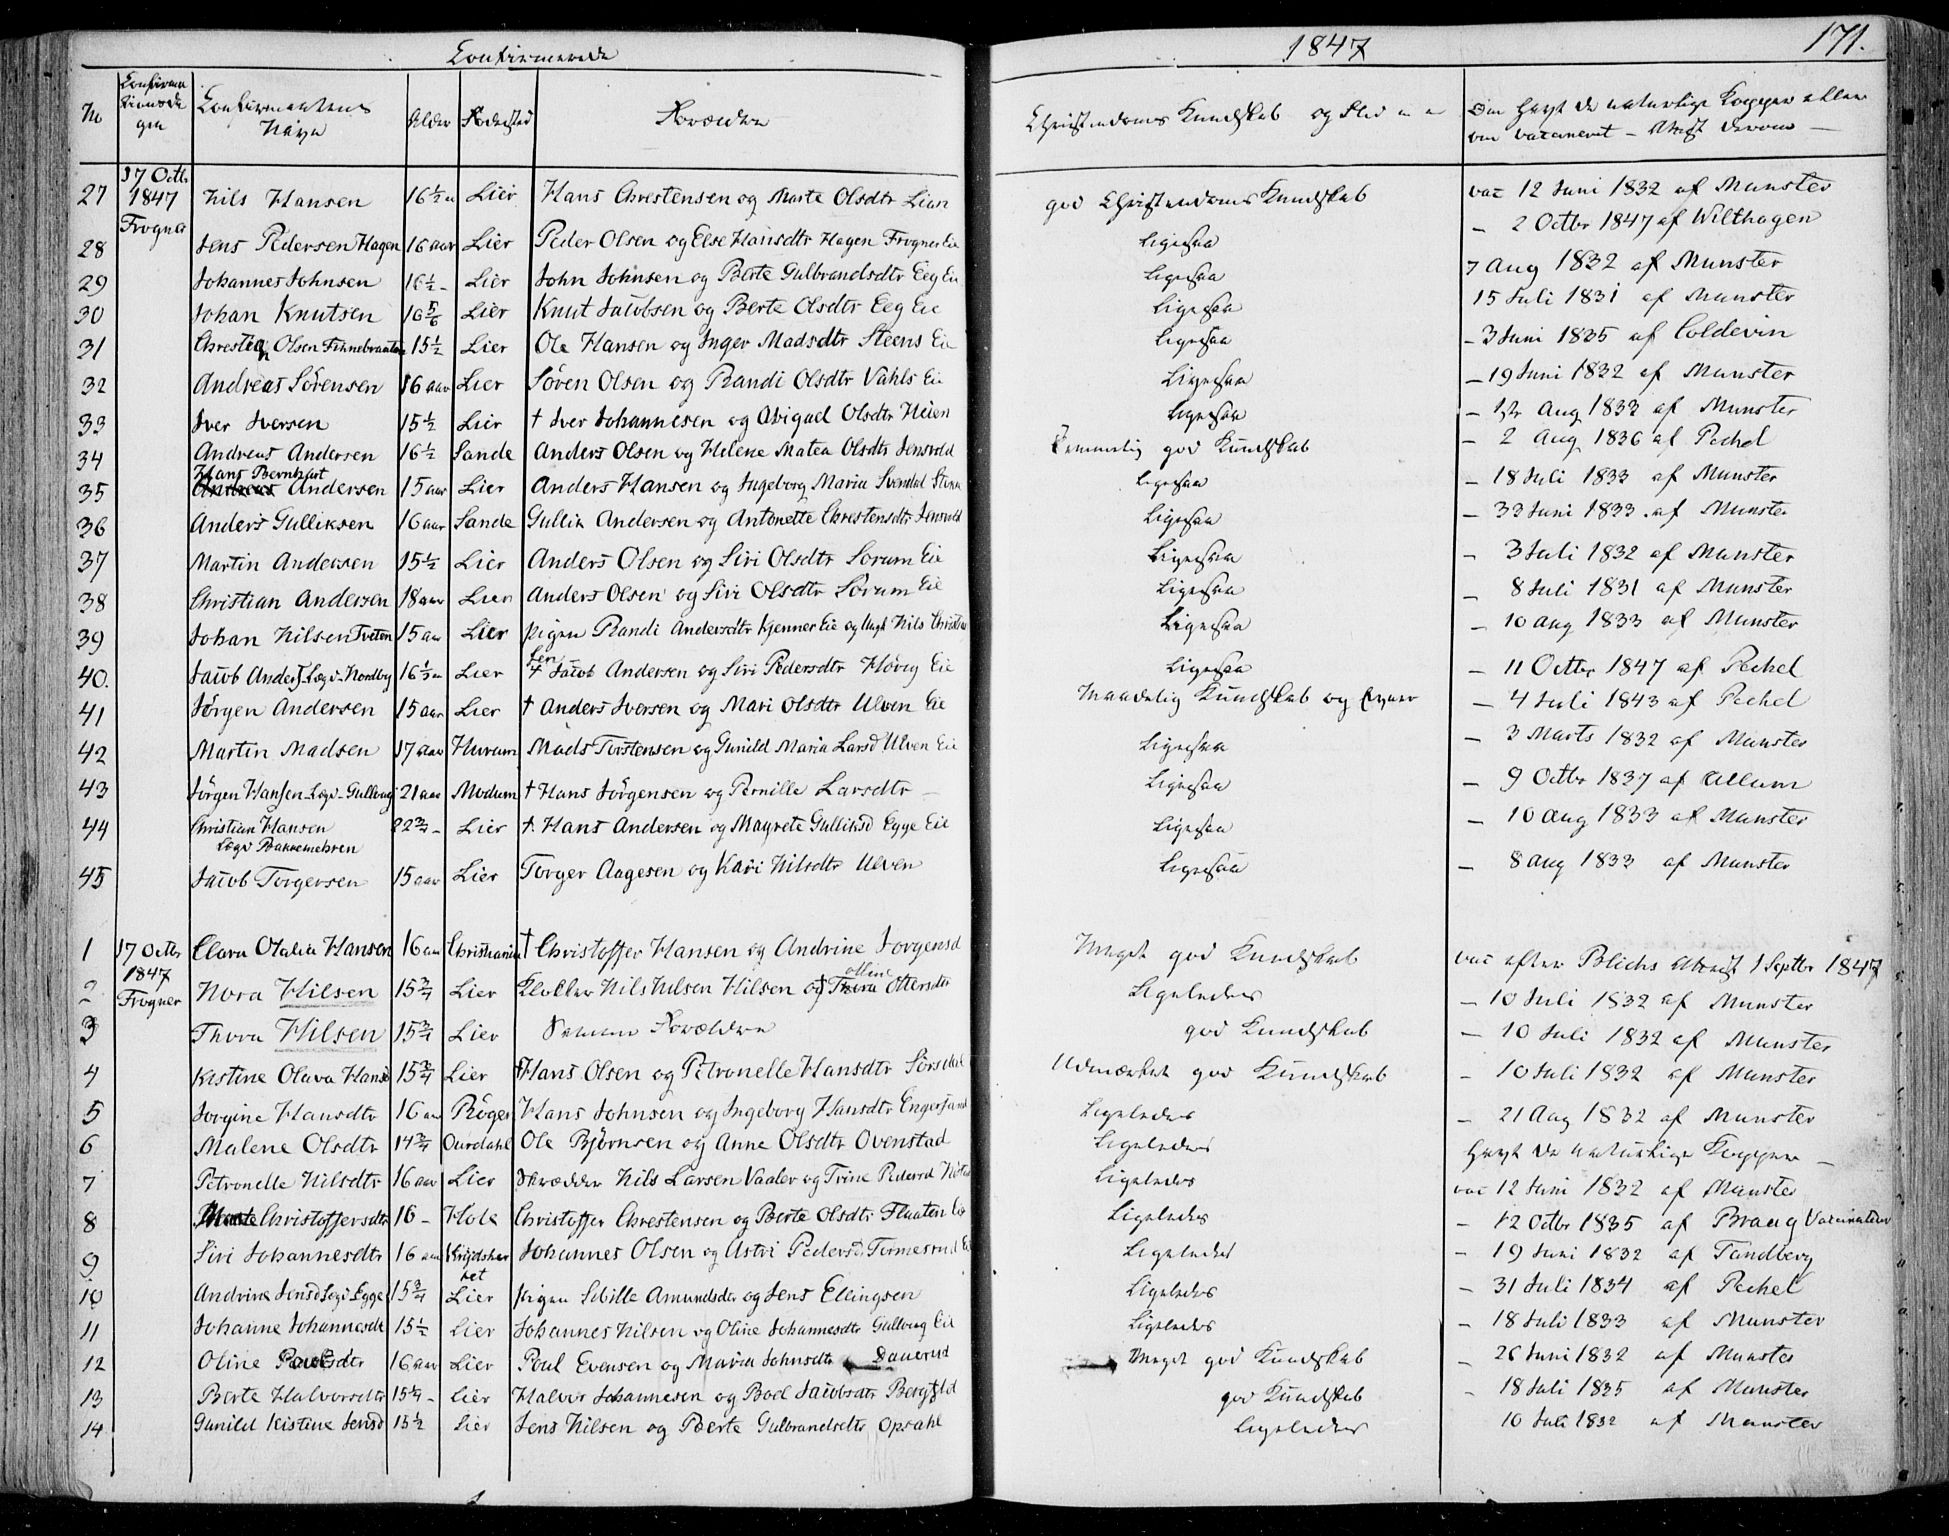 Confirmerede 1847 171.
No Confirmationsdagen Confirmantens Navn Alder Fødested Forældre Christendoms Kundskab og Flid Om havt de naturlige Kopper eller om vaccineret – Attest derom –
17 Octbr
27 1847 Nils Hansen 16 1/2 Lier Hans Chrestensen og Marte Olsdtr Lian god Christendoms Kundskab vac 12 Juni 1832 af Munster
Frogner
28 Jens Pedersen Hagen 16 aar Lier Peder Olsen og Else Hansdtr Hagen Frogner Eie Ligesaa – 2 Octbr 1847 af Wilthagen
29 Johannes Johnsen 16 1/2 – Lier John Johnsen og Berte Gulbrandsdtr Eeg Eie Ligesaa 7 Aug 1832 af Munster
30 Johan Knutsen 16 5/6 Lier Knut Jacobsen og Berte Olsdtr Eeg Eie Ligesaa 15 Juli 1831 af Munster
31 Olsen 15 1/2 Lier Ole Hansen og Inger Madsdtr Steens Eie Ligesaa – 3 Juni 1835 af Coldevin
32 Andreas Sörensen 16 aar Lier Sören Olsen og Randi Olsdtr Vahls Eie Ligesaa – 19 Juni 1832 af Munster
33 Iver Iversen 15 1/2 Lier † Iver Johannesen og Abigael Olsdtr Heien Ligesaa – Aug 1833 af Munster
34 Andreas Andersen 16 1/2 Sande Anders Olsen og Helene Matea Olsdtr Jensvold Temmelig god Kundskab – 2 Aug 1836 af Pechel
Hans Bernhart
35 Andreas Andersen 15 aar Lier Anders Hansen og Ingeborg Maria Ligesaa – 18 Juli 1833 af Munster
36 Anders Gulliksen 16 aar Sande Gullik Andersen og Antonette Chrestensdtr Jensvold Ligesaa – Juni 1833 af Munster
37 Martin Andersen 15 1/2 Lier Anders Olsen og Siri Olsdtr Sorum Eie Ligesaa – 3 Juli 1832 af Munster
38 Christian Andersen 18 aar Lier Anders Olsen og Siri Olsdtr Sorum Eie Ligesaa – 8 Juli 1831 af Munster
39 Johan Nilsen Tveten 15 aar Lier pigen Randi Andersdtr Kjenner Eie og Ungk Nils Ligesaa – 10 Aug 1833 af Munster
40. Jacob Anders. Lægd. Nordby 16 1/2 Lier Jacob Andersen og Siri Pedersdtr Hövig Eie Ligesaa – 11 Octbr 1847 af Pechel
41 Jörgen Andersen 15 aar Lier † Anders Iversen og Mari Olsdtr Ulven Eie Maadelig Kundskab og – 4 Juli 1843 af Pechel
42 Martin Madsen 17 aar Hurum Mads Torstensen og Gunild Maria Larsd Ulven Eie Ligesaa – 3 Marts 1832 af Munster
43 Jörgen Hansen Lægd. Gullaug 21 aar Modum † Hans Jörgensen og Pernille Larsdtr – Ligesaa – 9 Octbr 1837 af Allum
44 Christian Hansen 22 3/4 – Lier † Hans Andersen og Magrete Gulliksd Egge Eie Ligesaa – 10 Aug 1833 af Munster
Lægd Bakkemehren
45 Jacob Torgersen 15 aar Lier Torger Aagesen og Kari Nilsdtr Ulven Ligesaa – 8 Aug 1833 af Munster
1 17 Octbr Clara Otalia Hansen 16 aar Christiania † Christoffer Hansen og Andrine Jorgensd Meget god Kundskab vac efter Blichs Attest 1 Septbr 1847
2 1847 Nora Nilsen 15 3/4 Lier Klokker Nils Nilsen Nilsen og Ottersdtr Ligeledes – 10 Juli 1832 af Munster
Frogner
3 Thora Nilsen 15 3/4 Lier Samme Forældre god Kundskab – 10 Juli 1832 af Munster
4 Kistine Olava Hansd 15 3/4 Lier Hans Olsen og Petronelle Hansdtr Sörsdal Udmærket god Kundskab – 10 Juli 1832 af Munster
5 Jorgine Hansdtr 16 aar Röger Hans Johnsen og Ingeborg Hansdtr Engersand Ligeledes – 21 Aug 1832 af Munster
6 Malene Olsdtr 14 3/4 Ourdahl Ole Björnsen og Anne Olsdtr Ovenstad Ligeledes havt de naturlige Kopper –
7 Petronelle Nilsdtr 16 aar Lier Skrædder Nils Larsen Vaaler og Trine Pedersd Ligeledes vac 12 Juni 1832 af Munster
8 Christoffersdtr 16 – Hole Christoffer Chrestensen og Berte Olsdtr Flaaten Eie Ligeledes – 12 Octbr 1835 af Braag Vaccinateur
9 Siri Johannesdtr 16 aar Johannes Olsen og Astri Pedersd. Tormosrud Ei Ligeledes – 19 Juni 1832 af Tandberg
10 Andrine Jensd Lægd Egge 15 3/4 Lier pigen Sibille Amundsdtr og Jens Ellingsen Ligeledes – 31 Juli 1834 af Pechel
11 Johanne Johannesdt 15 1/2 Lier Johannes Nilsen og Oline Johannesdtr Gullaug Eie Ligeledes – 18 Juli 1833 af Munster
12 Oline Poulsdtr 16 aar Lier Poul Evensen og Maria Johnsdtr Dauerud Meget god Kundskab – 26 Juni 1832 af Munster
13 Berte Halvorsdtr 15 1/4 – Lier Halvor Johannesen og Boel Jacobsdtr Bergfld god Kundskab – 18 Juli 1835 af Munster
14 Gunild Kistine Jensd 15 1/2 Lier Jens Nilsen og Berte Gulbrandsdtr Opsahl Ligeledes 10 Juli 1832 af Munster